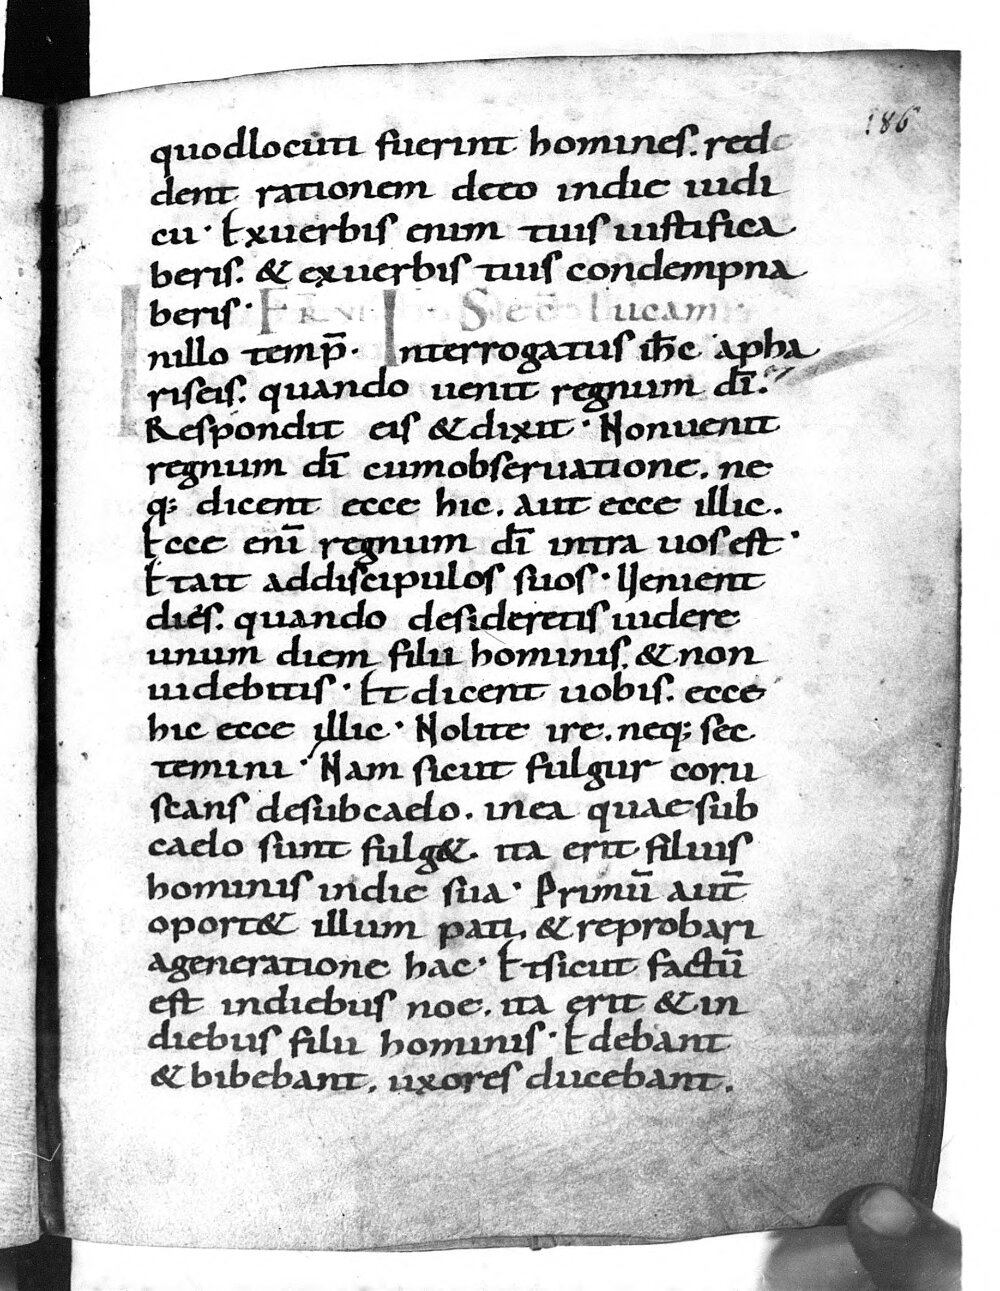 186
quodlocuti fuerint homines. redd
dent rationem deeo indie iudi
cii· Exuerbis enim tuis iustifica
beris. & exuerbis tuis condempna
beris· FR̄ VI Sec̄ Lucam·
nillo temp̄· Interrogatus ih̄c apha
riseis. quando uenit regnum dī.
Respondit eis &dixit· Nonuenit
regnum dī cumobseruatione. ne
q; dicent ecce hic. aut ecce illic.
Ecce enī regnum dī intra uosest·
Etait addiscipulos suos· Uenient
dies. quando desideretis uidere
unum diem filii hominis. &non
uidebitis· Etdicent uobis. ecce
hic ecce illic· Nolite ire. neq; sec
temini· Nam sicut fulgur coru
scans desubcaelo. inea quae sub
caelo sunt fulg&. ita erit filius
hominis indie sua· Primū aut̄
oport& illum pati. & reprobari
ageneratione hac· Etsicut factū
est indiebus noe. ita erit & in
diebus filii hominis· Edebant
& bibebant. uxores ducebant.